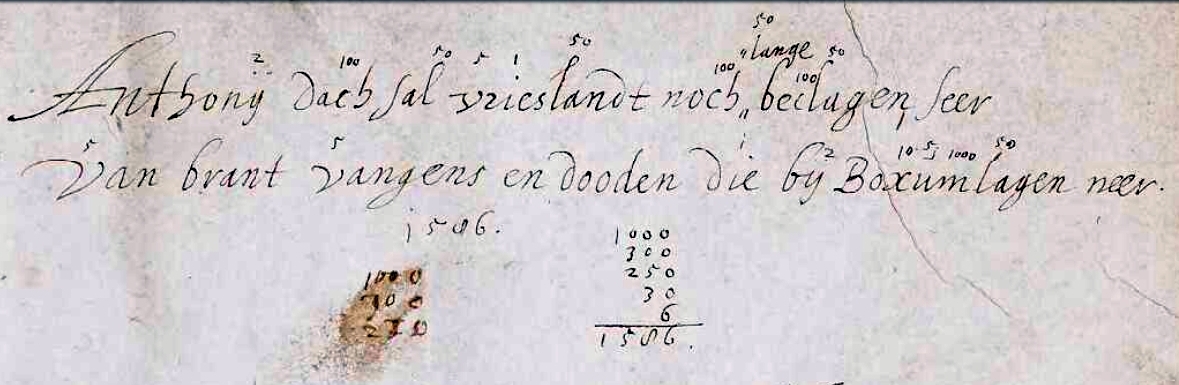 50
„lange
2 100 50 5 1 50 100 100 50
Anthonÿ dach sal vrieslandt noch„ beclagen seer
5 5 1 2 10 5 1000 50
Van brant vangens en dooden die bÿ Boxum lagen neer.
1586.
1000
300
250
30
6
1586.
1000
250